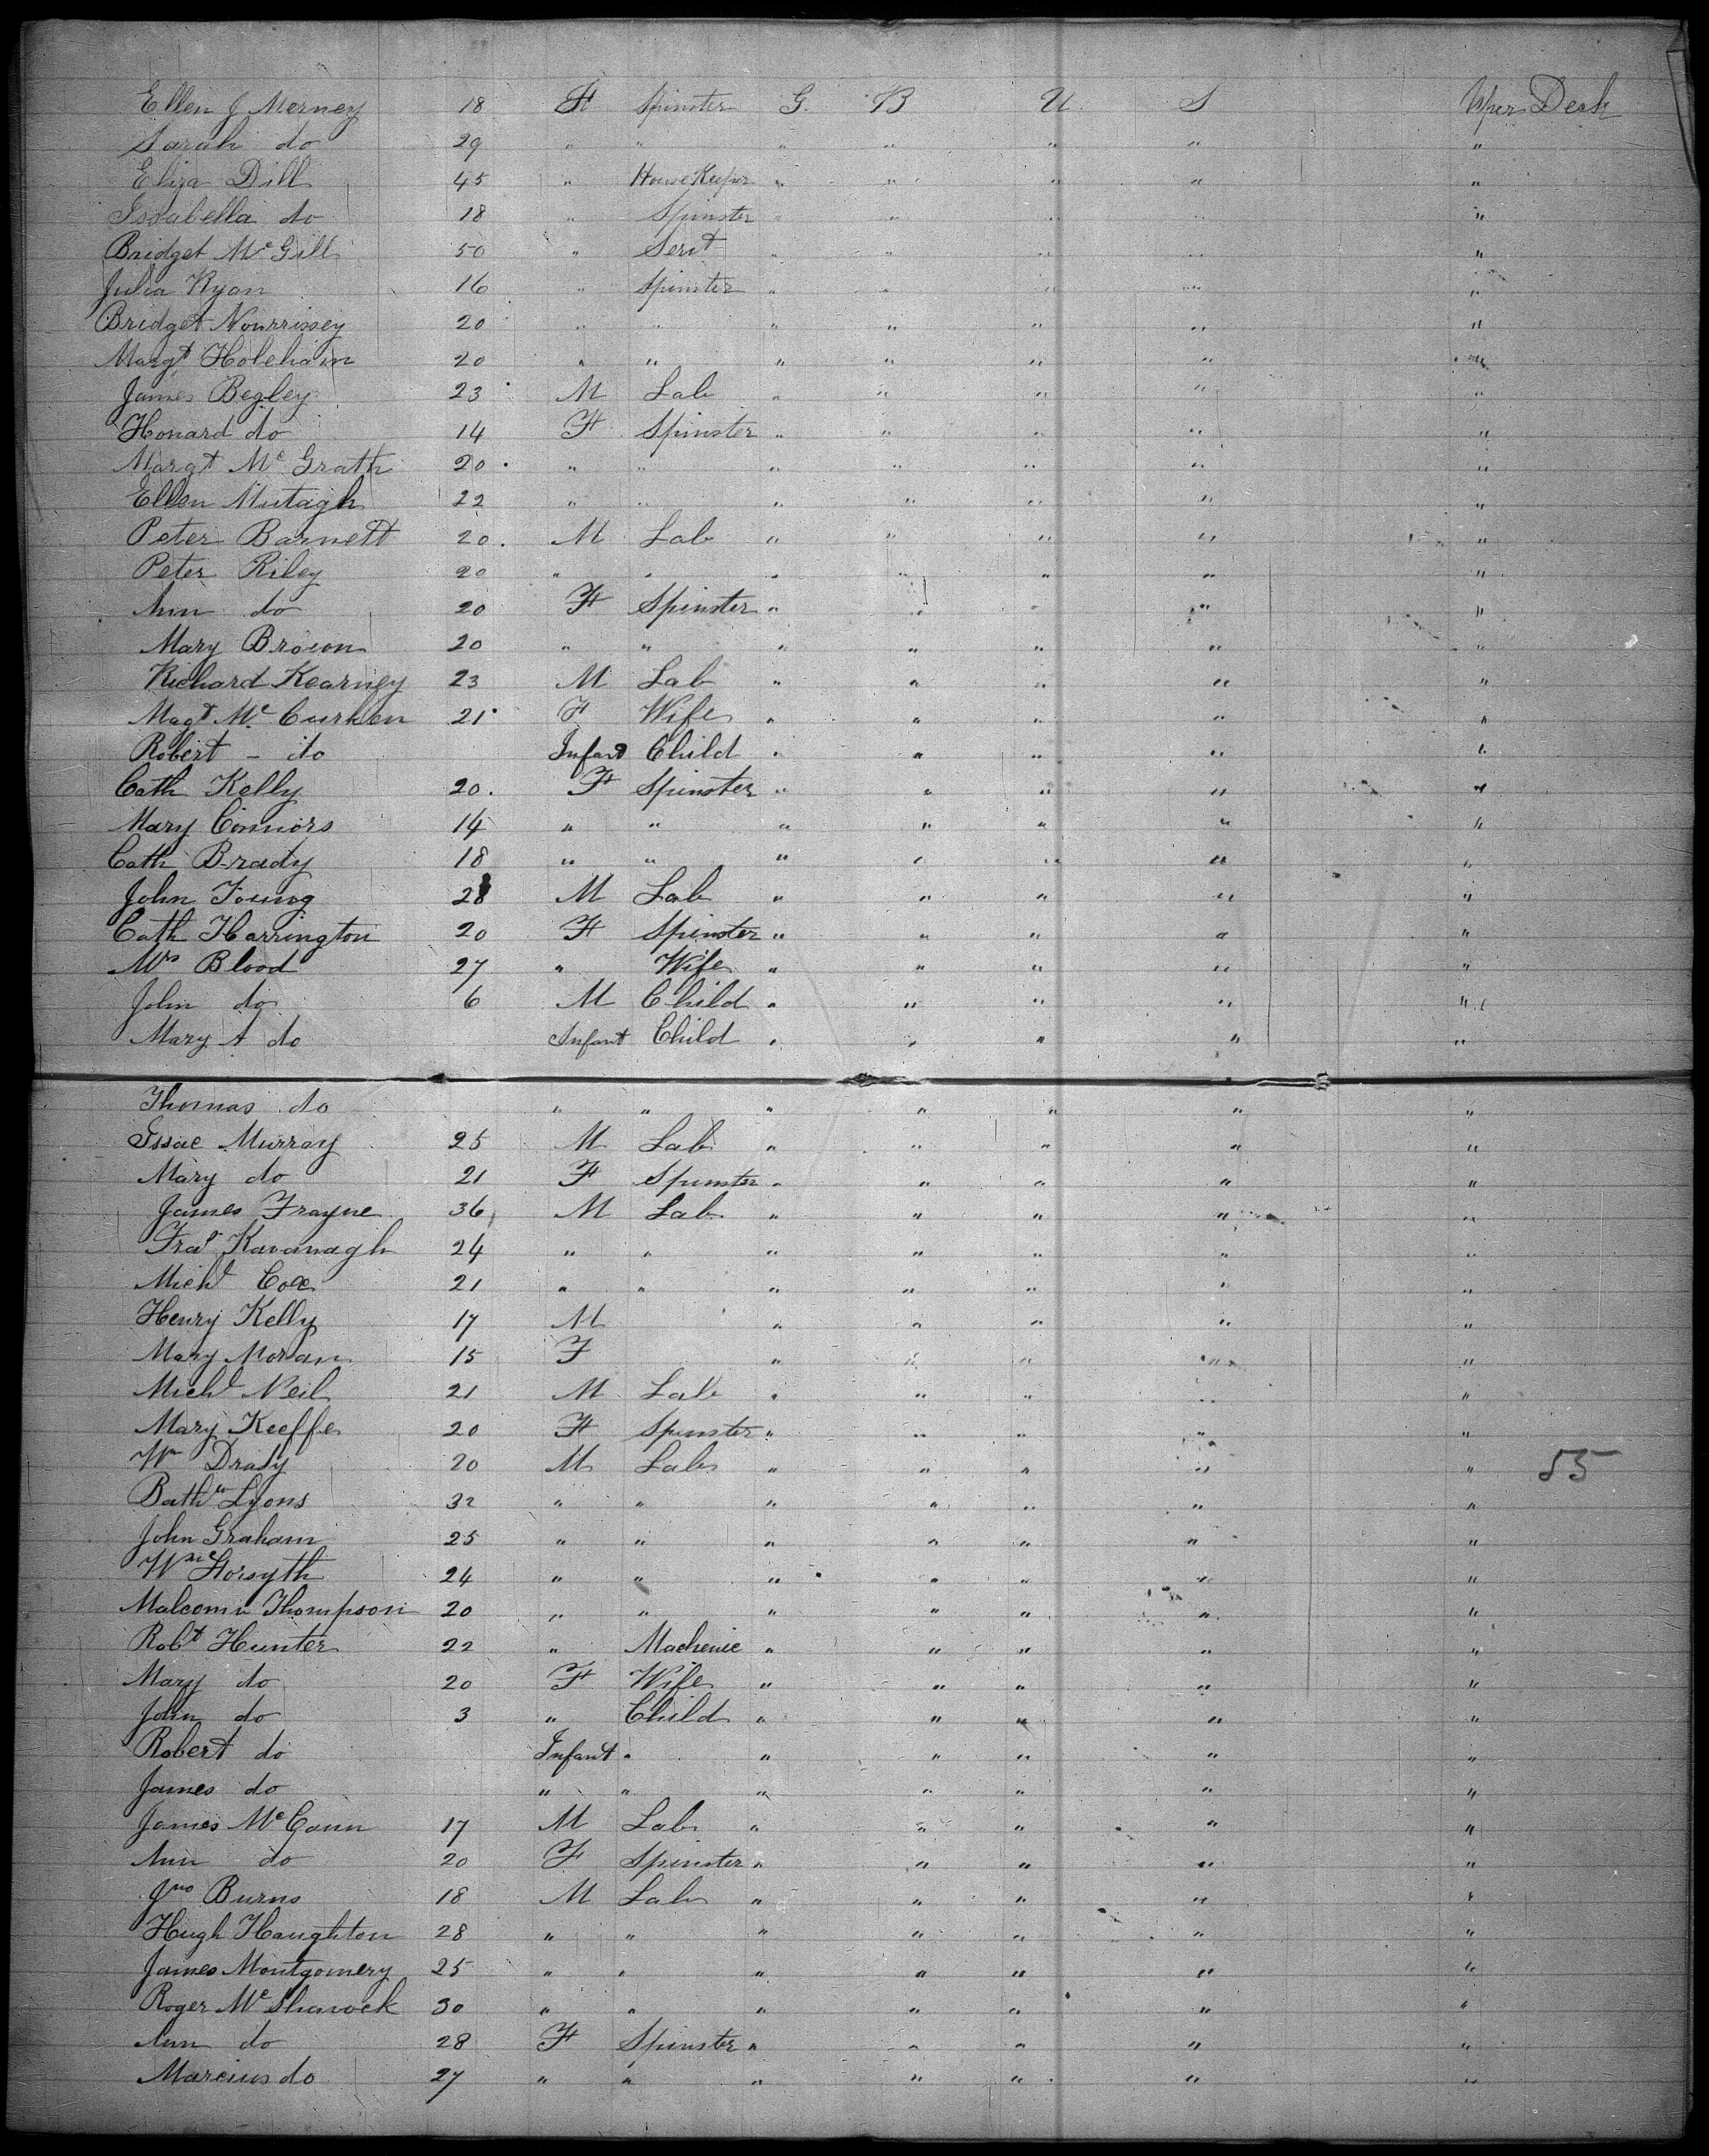 Ellen J Merney 18 F Spinster G. B U S Uper Deck
Sarah do 29 " " " " " " "
Eliza Dill 45 " House Keeper " " " " "
Issabella do 18 " Spinster " " " " "
Bridget Mc Gill 50 " Servt " " " " "
Julia Ryan 16 " Spinster " " " " "
Bridget Nourrissey 20 " " " " " " "
Margt Holeham 20 " " " " " " "
James Begley 23 M Lab " " " " "
Honard do 14 F Spinster " " " " "
Margt Mc Grath 20 " " " " " " "
Ellen Mutagh 22 " " " " " " "
Peter Barnett 20 M Lab " " " " "
Peter Riley 20 " " " " " " "
Ann do 20 F Spinster " " " " "
Mary Brown 20 " " " " " " "
Richard Kearney 23 M Lab " " " " "
Magt Mc Curken 21 F Wife " " " " "
Robert - do Infant Child " " " " "
Cath Kelly 20. F Spinster " " " " "
Mary Connors 14 " " " " " " "
Cath Brady 18 " " " " " " "
John Young 28 M Lab " " " " "
Cath Harrington 20 F Spinster " " " " "
Mrs Blood 27 " Wife " " " " "
John do 6 M Child " " " " "
Mary A do Infant Child " " " " "
Thomas do " " " " " " "
Issac Murray 25 M Lab " " " " "
Mary do 21 F Spinster " " " " "
James Frayne 36 M Lab " " " " "
Fras Kavanagh 24 " " " " " " "
Michl Cox 21 " " " " " " "
Henry Kelly 17 M " " " " "
Mary Moran 15 F " " " " "
Michl Neil 21 M Lab " " " " "
Mary Keeffe 20 F Spinster " " " " "
Wm Drady 20 M Lab " " " " " 55
Bathw Lyons 32 " " " " " " "
John Graham 25 " " " " " " "
Wm Horsyth 24 " " " " " " "
Malcomn Thompson 20 " " " " " " "
Robt Hunter 22 " Machenic " " " " "
Mary do 20 F Wife " " " " "
John do 3 " Child " " " " "
Robert do Infant " " " " " "
James do " " " " " " "
James McCann 17 M Lab " " " " "
Ann do 20 F Spinster " " " " "
Jno Burns 18 M Lab " " " " "
Hugh Haughton 28 " " " " " " "
James Montgomery 25 " " " " " " "
Roger Mc Sharock 30 " " " " " " "
Ann do 28 F Spinster " " " " "
Marcius do 27 " " " " " " "